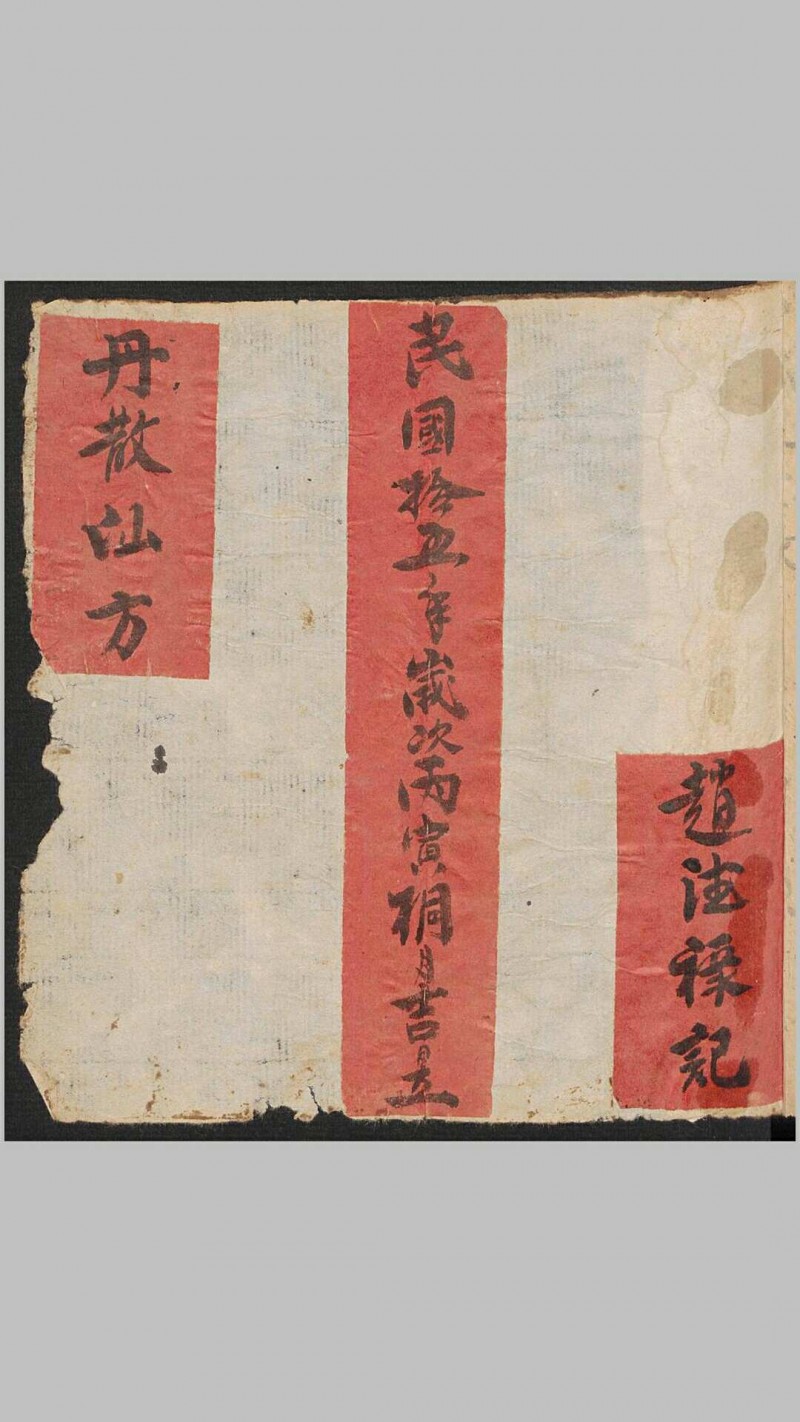 趙德祿記
民國拾五年歲次丙寅桐月吉日立
丹散仙方